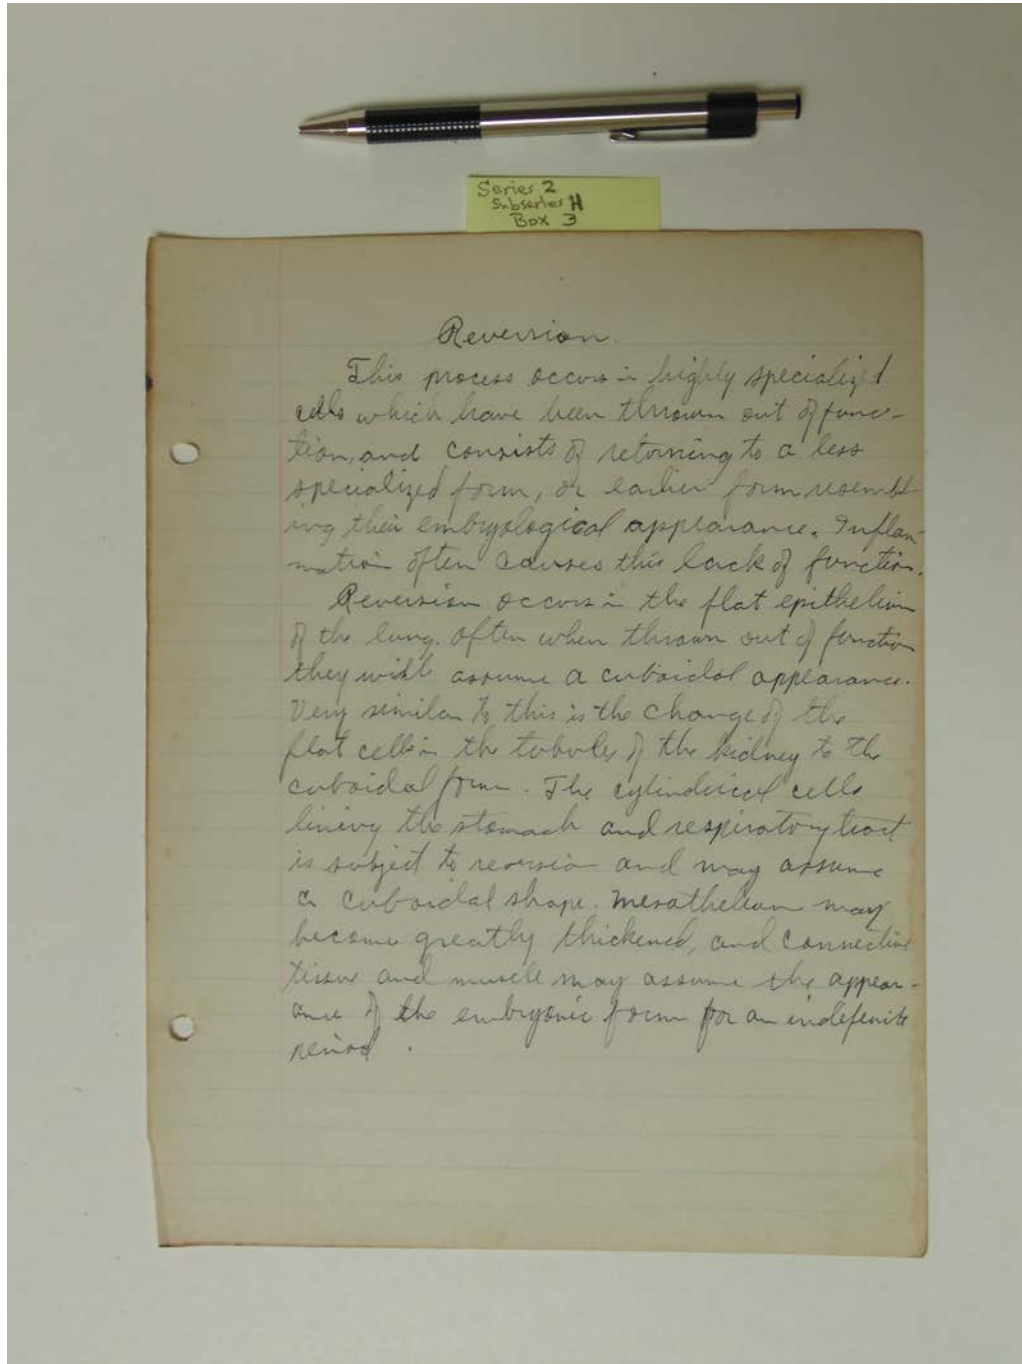 Series 2
Subseries H
Box 3
Reversion
This process occurs in highly specialized
cells which have been thrown out of func-
tion, and consists of returning to a less
specialized form, or earlier form resembl-
ing their embryological appearance. Inflam-
mation often causes this lack of function.
Reversion occurs in the flat epithelium
of the lung. often when thrown out of function
they will assume a cuboidal appearance.
Very similar to this is the change of the
flat cells in the tubules of the kidney to the
cuboidal form. The cylinderical cells
lining the stomach and respiratory tract
is subject to reversion and may assume
a cuboidal shape. Mesothelium may
become greatly thickened, and connective
tissue and muscle may assume the appear-
ance of the embryonic form for an indefenite
period.